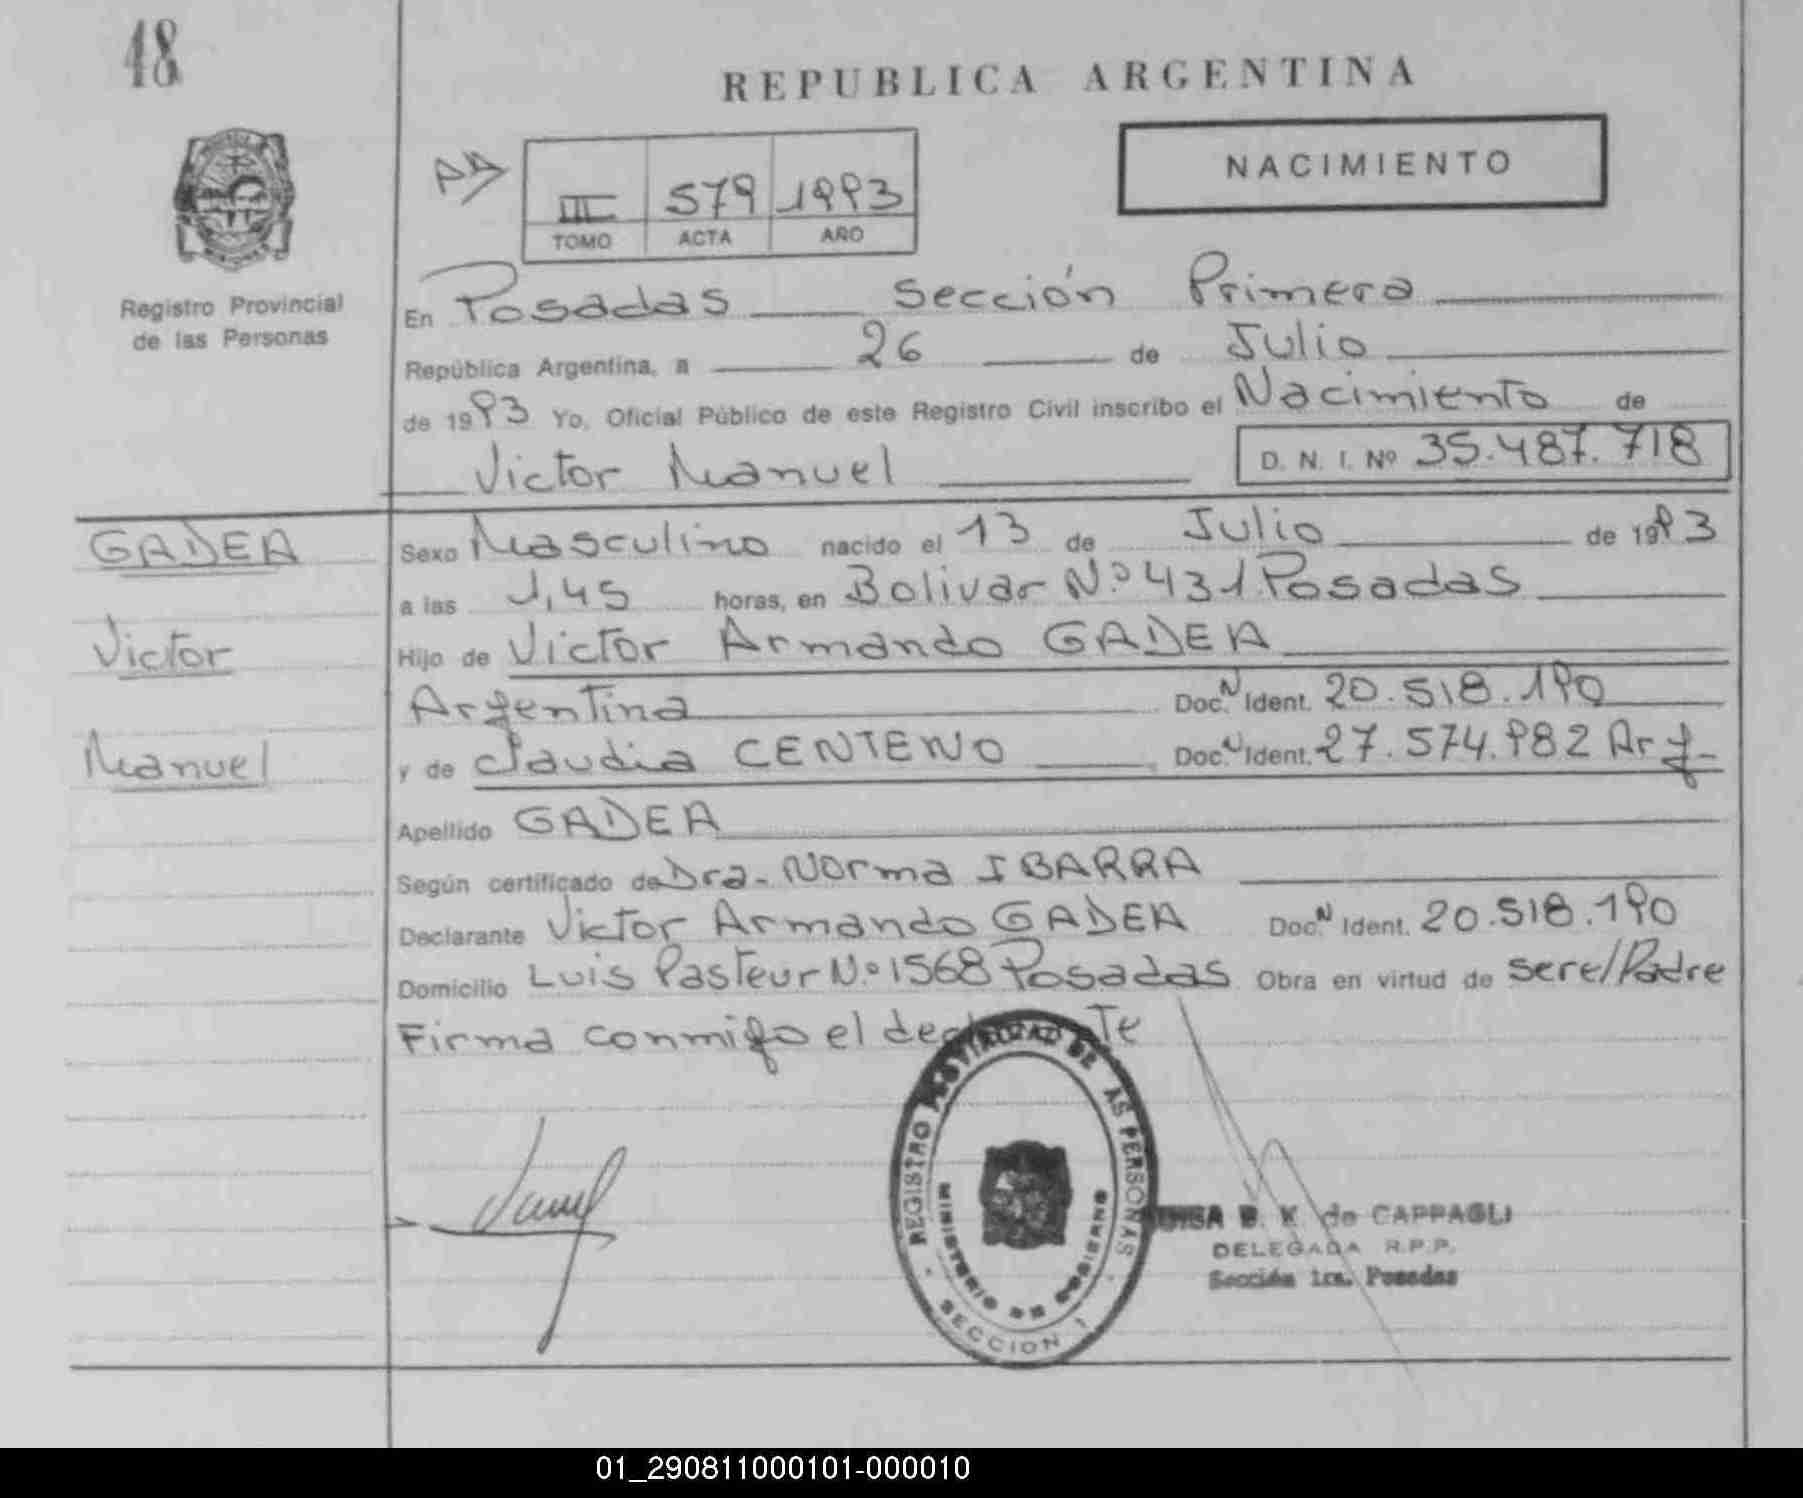 48
REPUBLICA ARGENTINA
NACIMIENTO
III 579 1993
TOMO ACTA AÑO
Registro Provincial
de las Personas
En Posadas Sección Primera
República Argentina, a 26 de Julio
de 1993 Yo, Oficial Público de este Registro Civil inscribo el Nacimiento de
Victor Manuel D. N. I. Nº 35.487.718
GADEA
Victor
Manuel
Sexo Masculino nacido el 13 de Julio de 1993
a las 1,45 horas, en Bolivar Nº 431 Posadas
Hijo de Victor Armando GADEA
Argentina Doc. N Ident. 20.518.190
y de Claudia CENTENO Doc. N Ident. 27.574.982 Arg.
Apellido GADEA
Según certificado de Dra. Norma IBARRA
Declarante Victor Armando GADEA Doc. N Ident. 20.518.190
Domicilio Luis Pasteur Nº 1568 Posadas Obra en virtud de sere/Padre
Firma conmigo el declarante
REGISTRO PROVINCIAL DE LAS PERSONAS
MINISTERIO DE GOBIERNO
SECCION 1
B. K. de CAPPAGLI
DELEGADA R.P.P.
Sección 1ra. Posadas
01_290811000101-000010